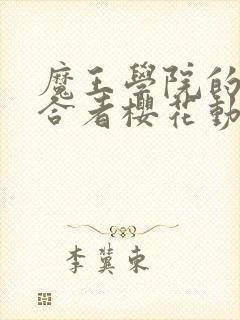 魔王學院的
合者櫻花動
李冀東